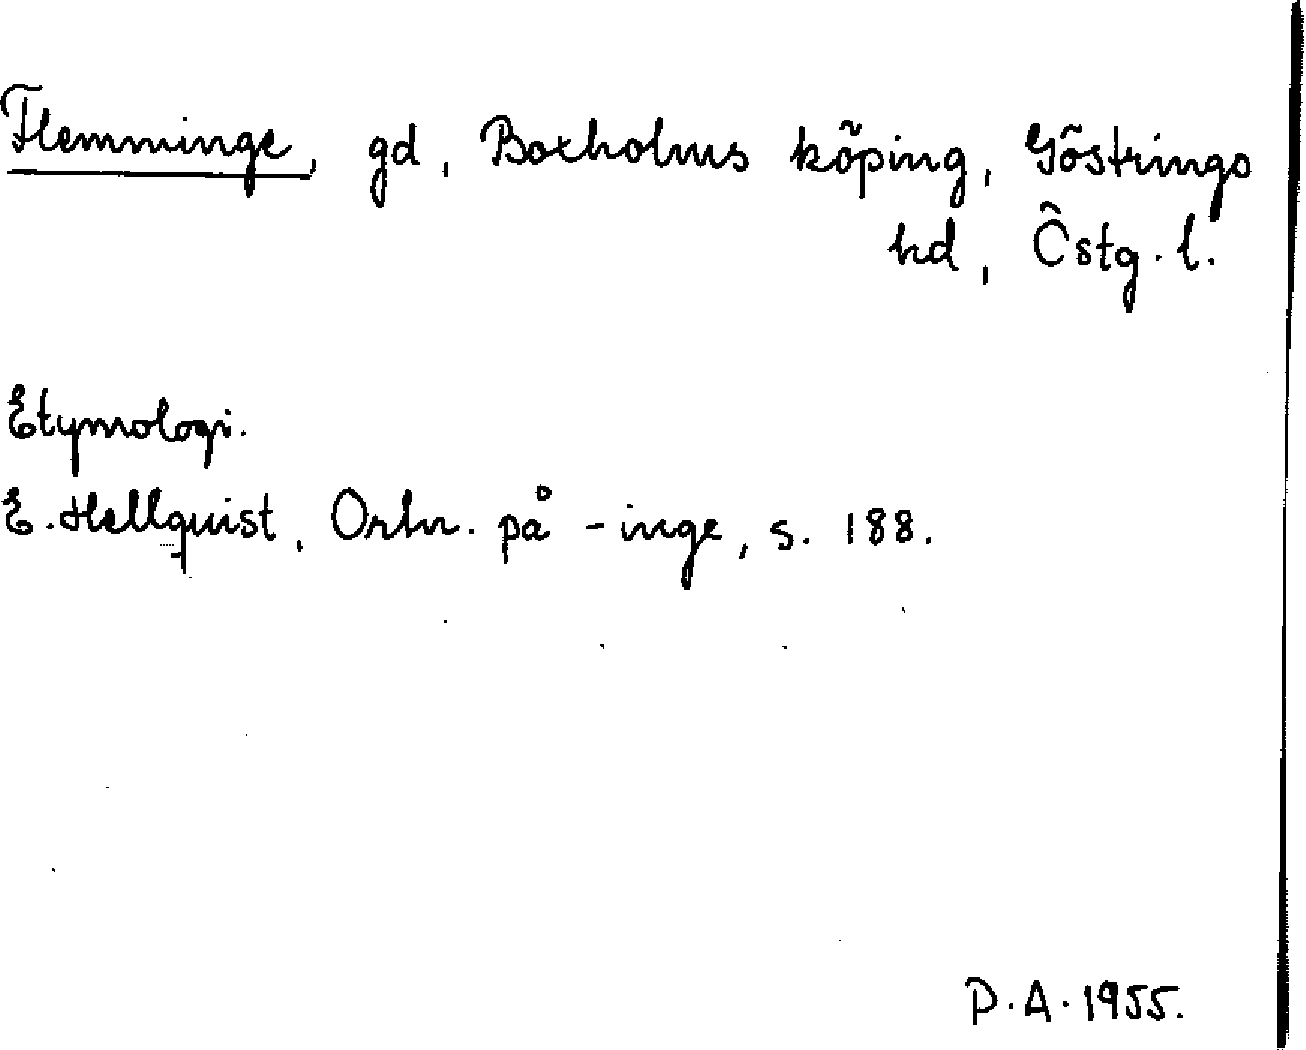 Flemminge, gd, Boxholms köping, Göstrings
hd, Östg. l.
Etymologi.
E. Hellquist, Ortn. på -inge, s. 188.
P.A. 1955.